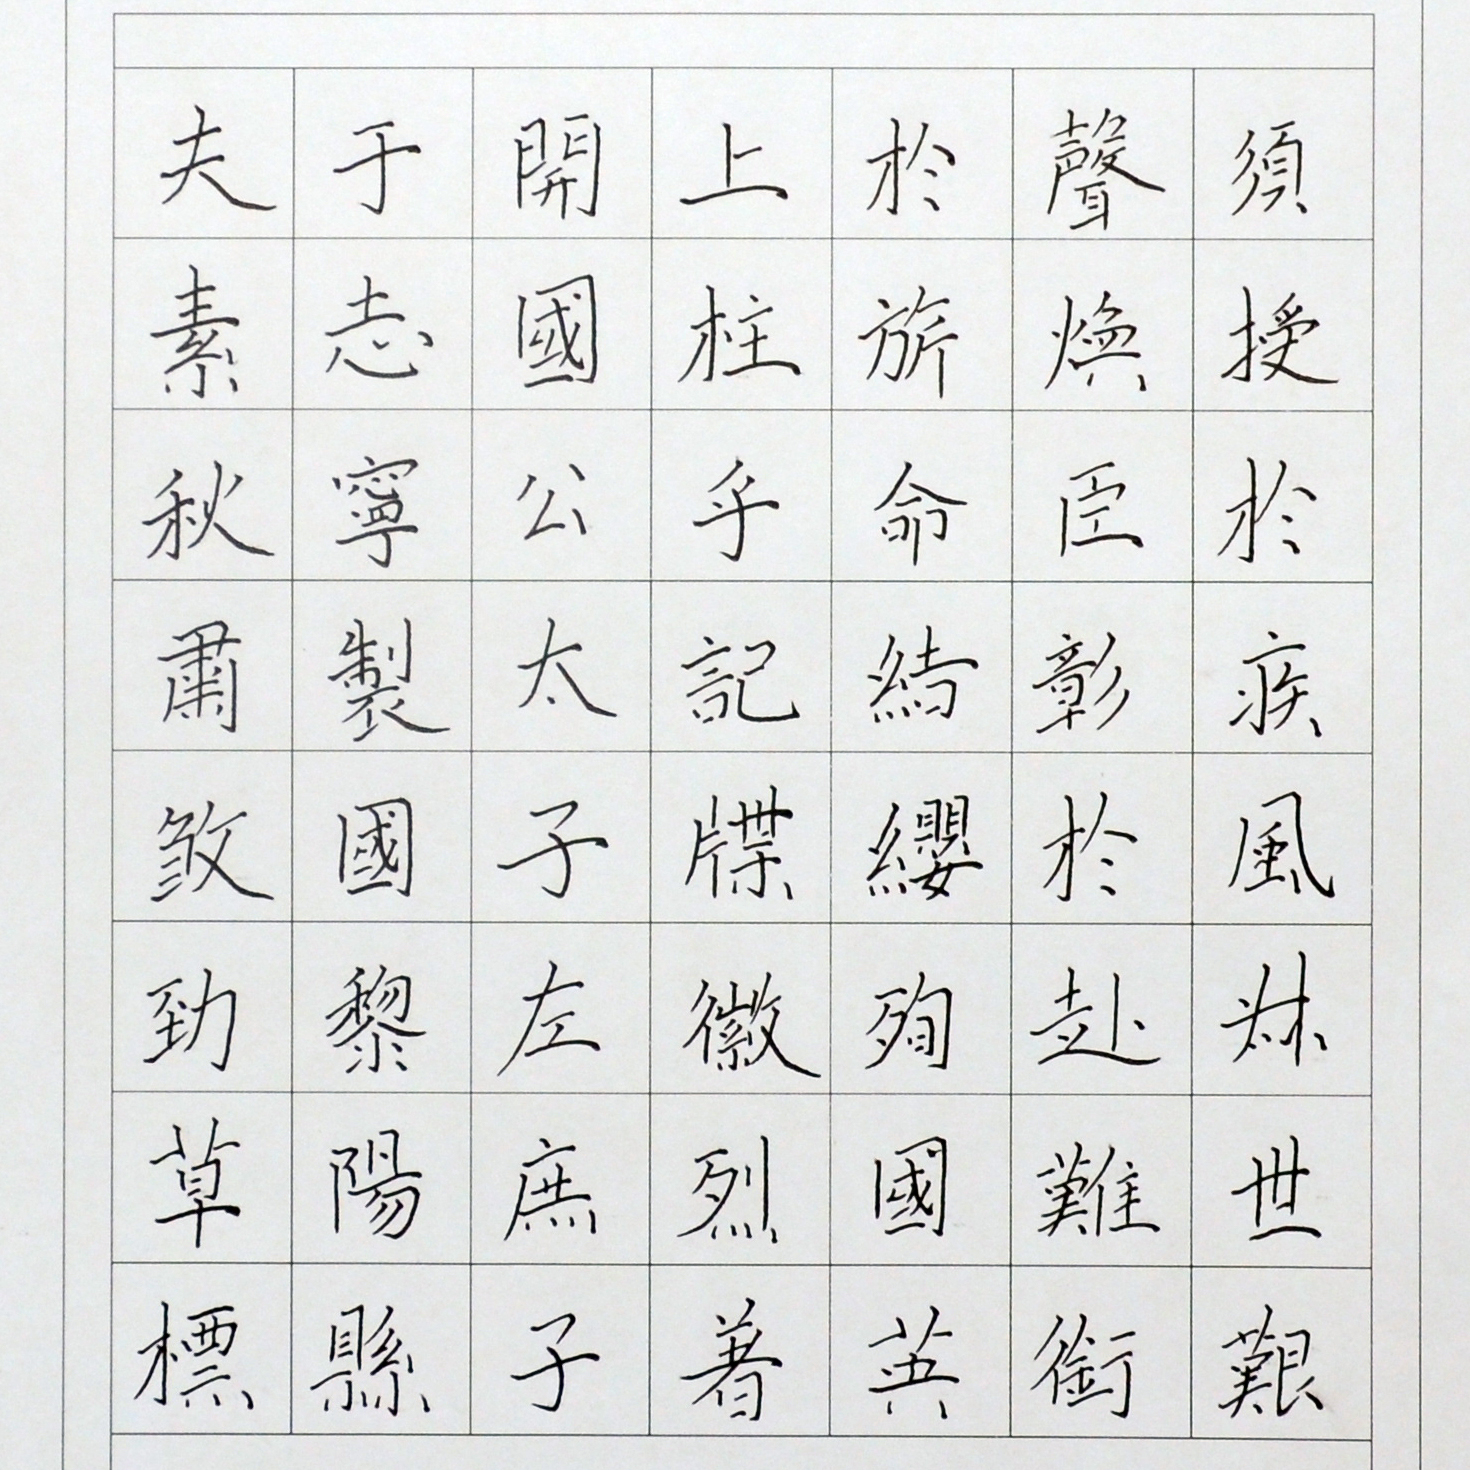 須授於疾風叔世艱
聲煥臣彰於赴難銜
於旂命結纓殉國英
上柱乎記牒徽烈著
開國公太子左庶子
于志寧製國黎陽縣
夫素秋肅煞勁草標